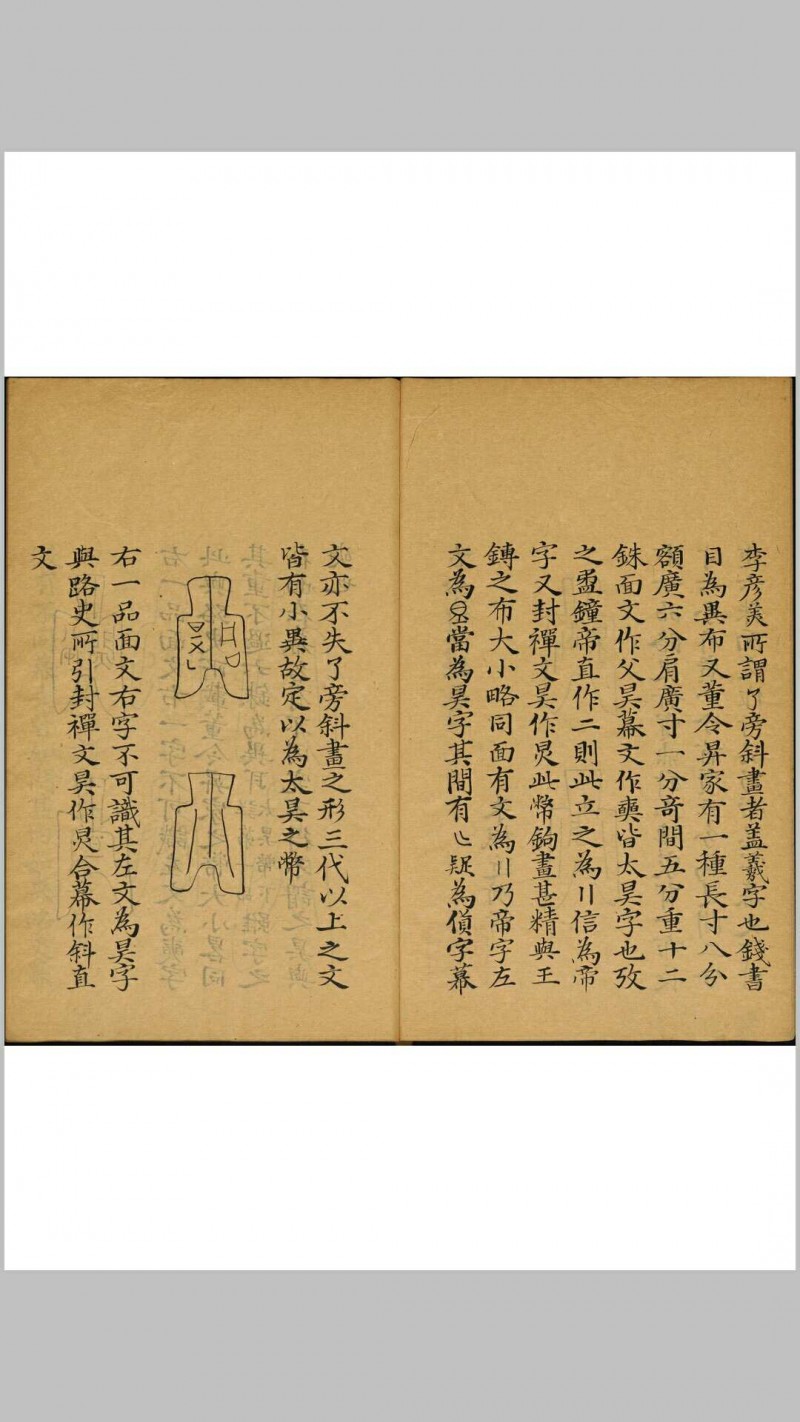 李彦美所謂了旁斜畫者蓋羲字也錢書
目為異布又董令昇家有一種長寸八分
額廣六分肩廣寸一分奇間五分重十二
銖面文作父昊幕文作奭皆太昊字也攷
之盄鐘帝直作二則此立之為〢信為帝
字又封禪文昊作炅此幣鉤畫甚精與王
鏄之布大小略同面有文為〢乃帝字左
文為 當為昊字其間有 疑為偩字幕
文亦不失了旁斜畫之形三代以上之文
皆有小異故定以為太昊之幣
右一品面文右字不可識其左文為昊字
與路史所引封禪文昊作炅合幕作斜直
文